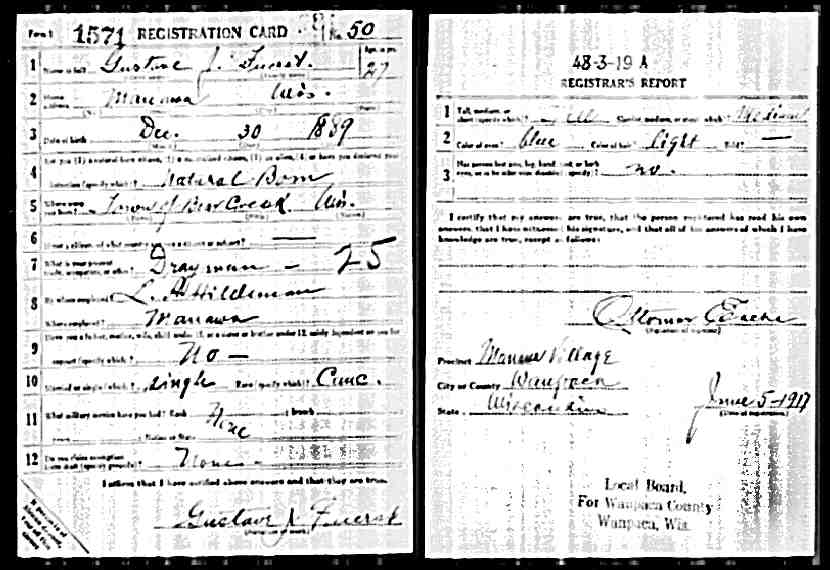 Form 1 1571 REGISTRATION CARD No. 50
1 Name in full Gustave J. Fuerst. Age, in yrs. 27
2 Home address Manawa Wis.
3 Date of birth Dec. 30 1889
4 Are you (1) a natural born citizen, (2) a naturalized citizen, (3) an alien, (4) or have you declared your
intention (specify which)? Natural Born
5 Where were you born? Town of Bear Creek Wis.
6 If not a citizen, of what country are you a citizen or subject? ——
7 What is your present trade, occupation, or office? Drayman — 25
8 By whom employed? Hildeman
Where employed? Manawa
9 Have you a father, mother, wife, child under 12, or a sister or brother under 12, solely dependent on you for
support (specify which)? No —
10 Married or single (which)? single Race (specify which)? Cauc.
11 What military service have you had? Rank None ; branch
years ; Nation or State
12 Do you claim exemption from draft (specify grounds)? None —
I affirm that I have verified above answers and that they are true.
Gustave J. Fuerst
48-3-19 A
REGISTRAR'S REPORT
1 Tall, medium, or short (specify which)? Slender, medium, or stout (which)? Medium
2 Color of eyes? blue Color of hair? Light Bald? —
3 Has person lost arm, leg, hand, foot, or both eyes, or is he otherwise disabled (specify)? no.
I certify that my answers are true, that the person registered has read his own
answers, that I have witnessed his signature, and that all of his answers of which I have
knowledge are true, except as follows:
Ottomar
(Signature of registrar)
Precinct Manawa Village
City or County Waupaca
State Wisconsin
June 5-1917
(Date of registration)
Local Board,
For Waupaca County
Waupaca, Wis.